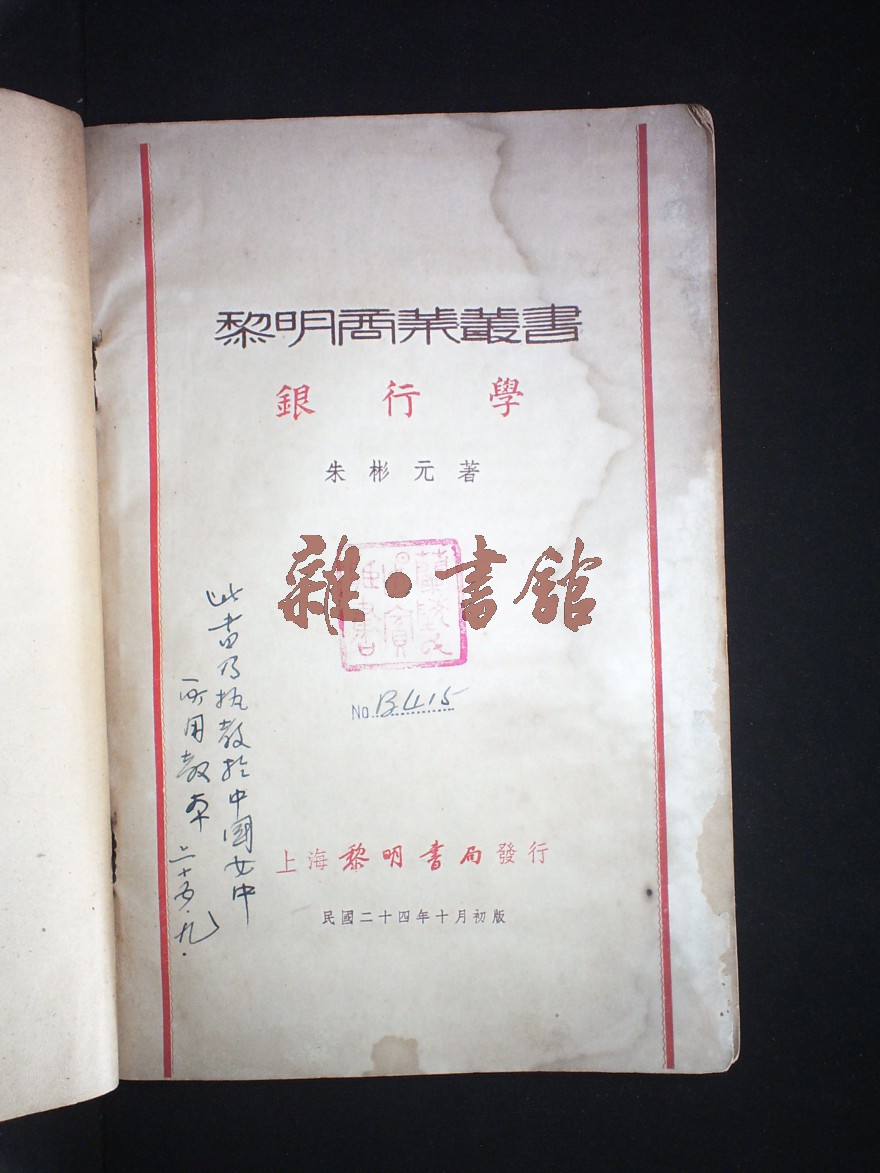 黎明商業叢書
銀行學
朱彬元著
雜·書館
No. B415
此書乃执教於中國女中
所用教本 二十五.九.
上海黎明書局發行
民國二十四年十月初版